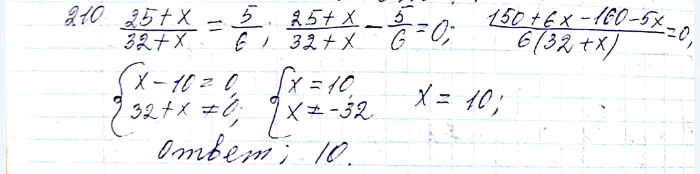 210 (25+x)/(32+x) = 5/6; (25+x)/(32+x) - 5/6 = 0; (150+6x-160-5x)/(6(32+x)) = 0,
{x-10=0, 32+x≠0; {x=10, x≠-32 x=10;
Ответ; 10.